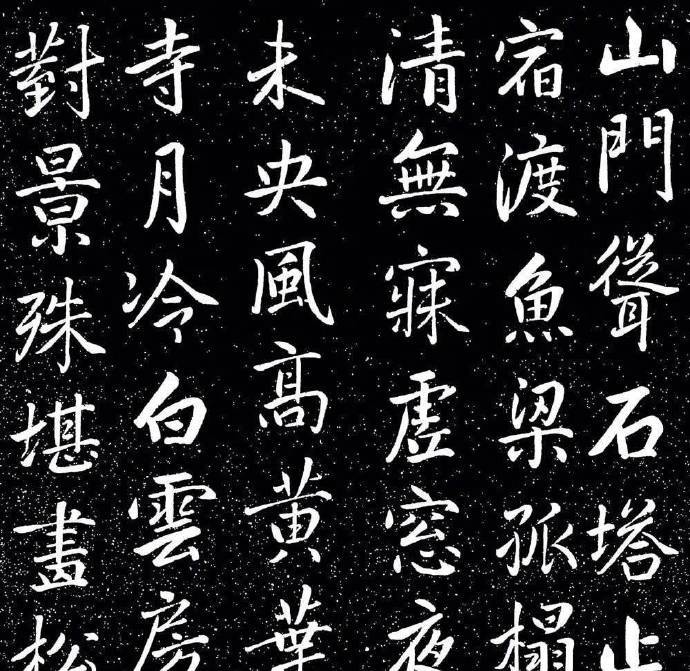 山門聳石塔
宿渡魚梁孤榻
清無寐虛窓夜
未央風高黄葉
寺月冷白雲房
對景殊堪畫松